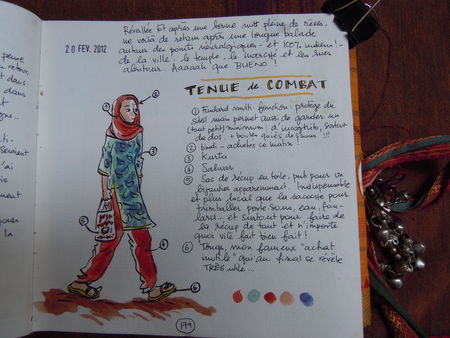 peine
dans
et dans
20 FEV. 2012
Réveillée tôt après une bonne nuit pleine de rêves,
me voilà de retour après une longue balade
autour des points névralgiques - et 100% indien! -
de la ville: le temple, le marché et les rues
alentour. Aaaaah que BUENO!
TENUE de COMBAT
① Foulard multi-fonction: protège du
soleil mais permet aussi de garder un
(tout petit) minimum d'incognito, surtout
de dos. !!!
② bindi - achetés ce matin!
③ Kurta
④ Salwar
⑤ Sac de récup en toile, pub pour un
bijoutier apparemment. Indispensable
et plus local que la sacoche pour
trimballer porte-sous, eau, fou-
lard... et surtout pour faire de
la récup de tout et n'importe
quoi vite fait bien fait!
⑥ Tongs, mon fameux "achat
inutile" qui au final se révèle
TRÈS utile...
①
②
③
④
⑤
⑥
171